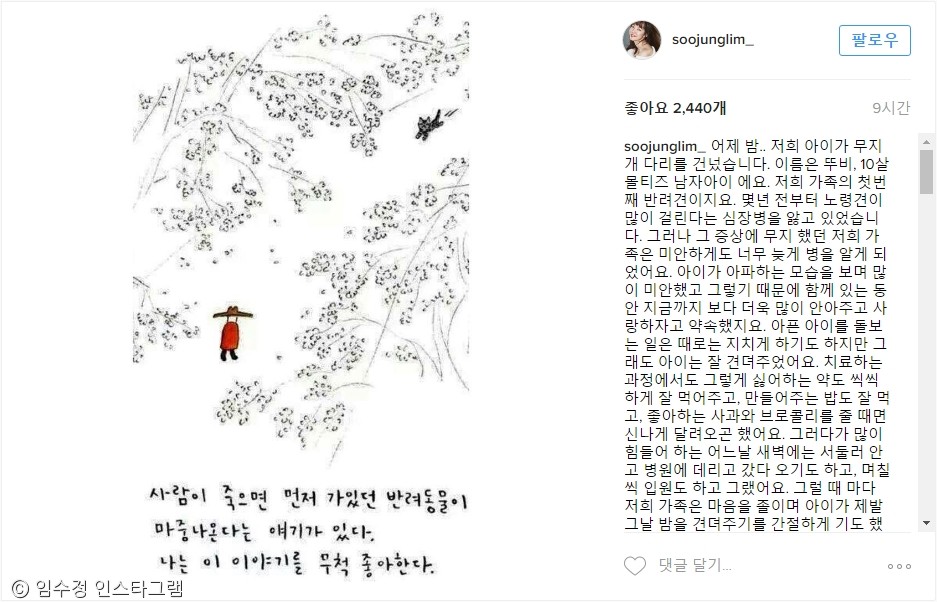 soojunglim_
팔로우
좋아요 2,440개
9시간
soojunglim_ 어제 밤.. 저희 아이가 무지
개 다리를 건넜습니다. 이름은 뚜비, 10살
몰티즈 남자아이 에요. 저희 가족의 첫번
째 반려견이지요. 몇년 전부터 노령견이
많이 걸린다는 심장병을 앓고 있었습니
다. 그러나 그 증상에 무지 했던 저희 가
족은 미안하게도 너무 늦게 병을 알게 되
었어요. 아이가 아파하는 모습을 보며 많
이 미안했고 그렇기 때문에 함께 있는 동
안 지금까지 보다 더욱 많이 안아주고 사
랑하자고 약속했지요. 아픈 아이를 돌보
는 일은 때로는 지치게 하기도 하지만 그
래도 아이는 잘 견뎌주었어요. 치료하는
과정에서도 그렇게 싫어하는 약도 씩씩
하게 잘 먹어주고, 만들어주는 밥도 잘 먹
고, 좋아하는 사과와 브로콜리를 줄 때면
신나게 달려오곤 했어요. 그러다가 많이
힘들어 하는 어느날 새벽에는 서둘러 안
고 병원에 데리고 갔다 오기도 하고, 며칠
씩 입원도 하고 그랬어요. 그럴 때 마다
저희 가족은 마음을 졸이며 아이가 제발
그날 밤을 견뎌주기를 간절하게 기도 했
댓글 달기...
사람이 죽으면 먼저 가있던 반려동물이
마중나온다는 얘기가 있다.
나는 이 이야기를 무척 좋아한다.
ⓒ 임수정 인스타그램